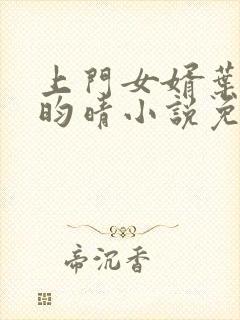 上門女婿葉
昀晴小說免
帝沉香